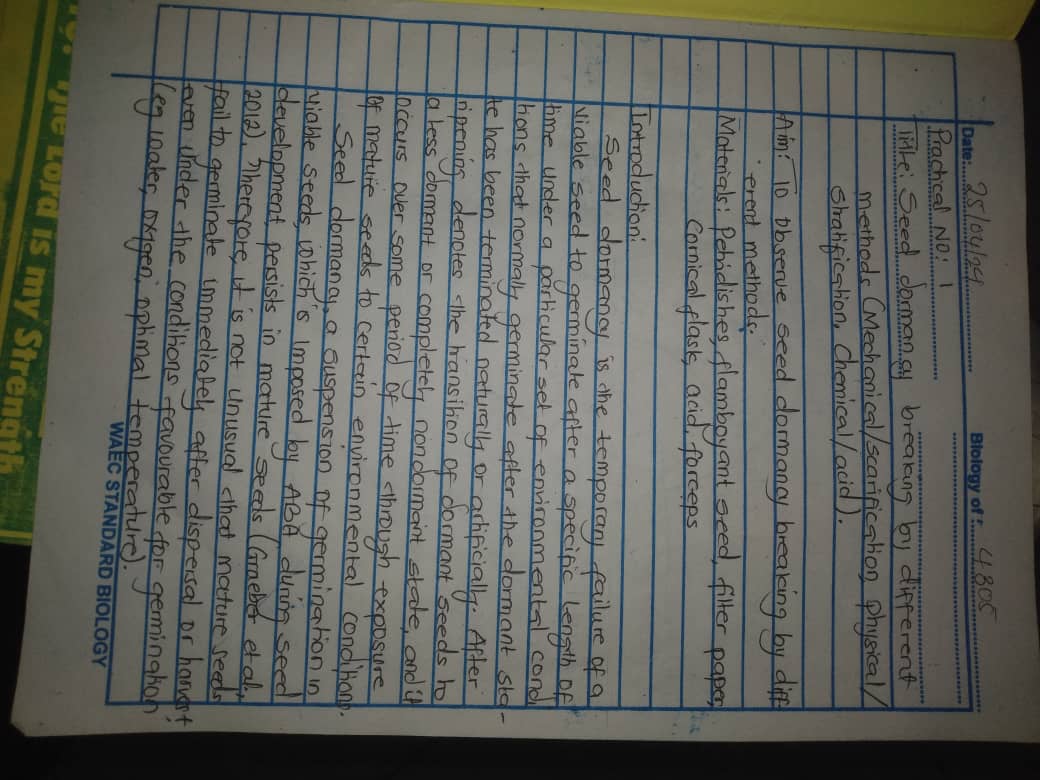 Date: 25/04/24 Biology of: 4.305
Practical NO: 1
Title: Seed dormancy breaking by different
methods (Mechanical/scarification, physical/
Stratification, Chemical/acid).
Aim: To observe seed dormancy breaking by diff-
erent methods.
Materials: Petridishes, flamboyant seed, filter paper,
Conical flask, acid, forceps
Introduction:
Seed dormancy is the temporary failure of a
viable seed to germinate after a specific length of
time under a particular set of environmental cond
itions that normally germinate after the dormant sta-
te has been terminated naturally or artificially. After
ripening, denotes the transition of dormant seeds to
a less dormant or completely nondormant state, and it
occurs over some period of time through exposure
of mature seeds to certain environmental conditions.
Seed dormancy, a suspension of germination in
viable seeds, which is imposed by ABA during seed
development, persists in mature seeds (Graeber et al.,
2012). Therefore, it is not unusual that mature seeds
fail to germinate immediately after dispersal or harvest,
even under the conditions favourable for germination
(eg water, oxygen, optimal temperature).
WAEC STANDARD BIOLOGY
The Lord is my Strength